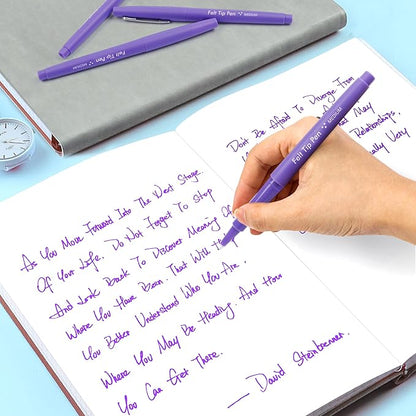 Felt Tip Pen MEDIUM
Felt Tip Pen MEDIUM
As You Move Forward Into The Next Stage
Of Your Life. Do Not Forget To Stop
And Look Back To Discover Meaning Of
Where You Have Been. That Will Help
You Better Understand Who You Are.
Where You May Be Heading. And How
You Can Get There.
— David Steinbrenner.
Dont Be Afraid To Diverge From
May
Relationships.
Very
Felt Tip Pen MEDIUM